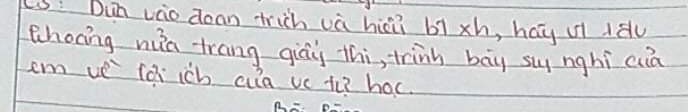 C3: Dựa vào đoạn trích và hiểu b1 xh, hãy vi 1 đv
khoảng nửa trang giấy thi, trình bày suy nghĩ của
em về lợi ích của vc tự học.